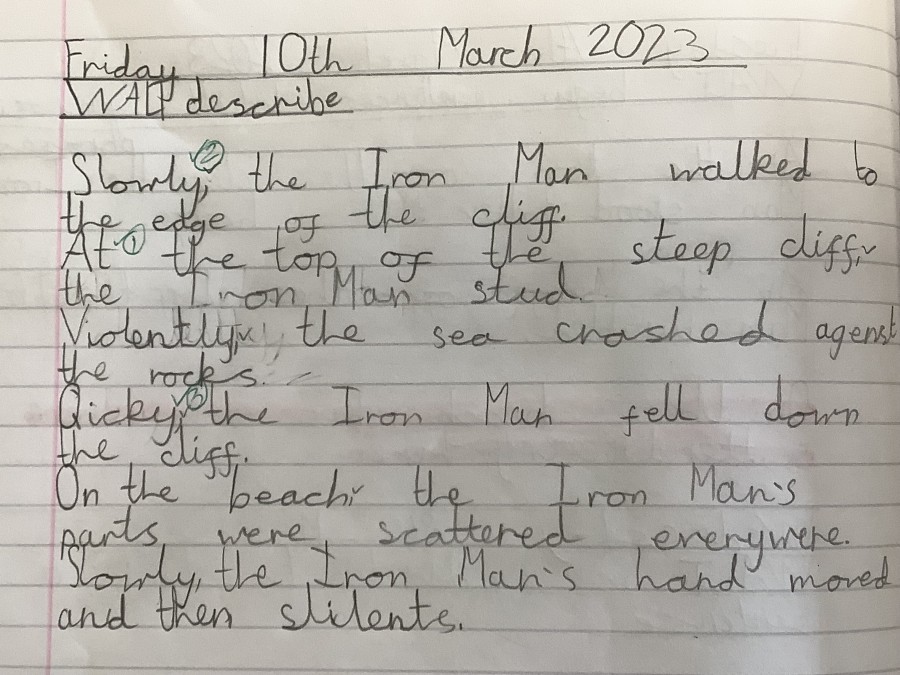 Friday 10th March 2023
WALT describe
Slowly, ② the Iron Man walked to
the edge of the cliff.
At ① the top of the steep cliff,
the Iron Man stud.
Violently, the sea crashed agenst
the rocks.
Qicky, ③ the Iron Man fell down
the cliff.
On the beach, the Iron Man's
parts were scattered everywere.
Slowly, the Iron Man's hand moved
and then slilents.